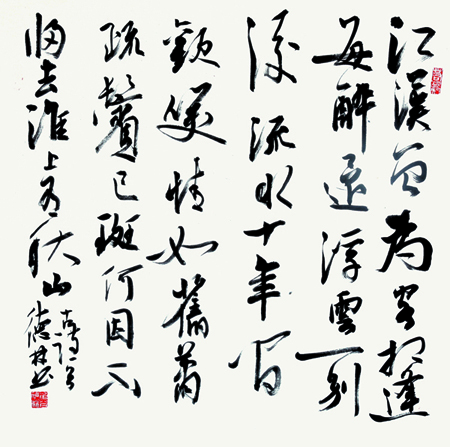 江漢曾為客相逢
每醉還浮雲一别
後流水十年間
歡笑情如舊蕭
疏鬢已斑何因不
歸去淮上有秋山
古詩
德林书